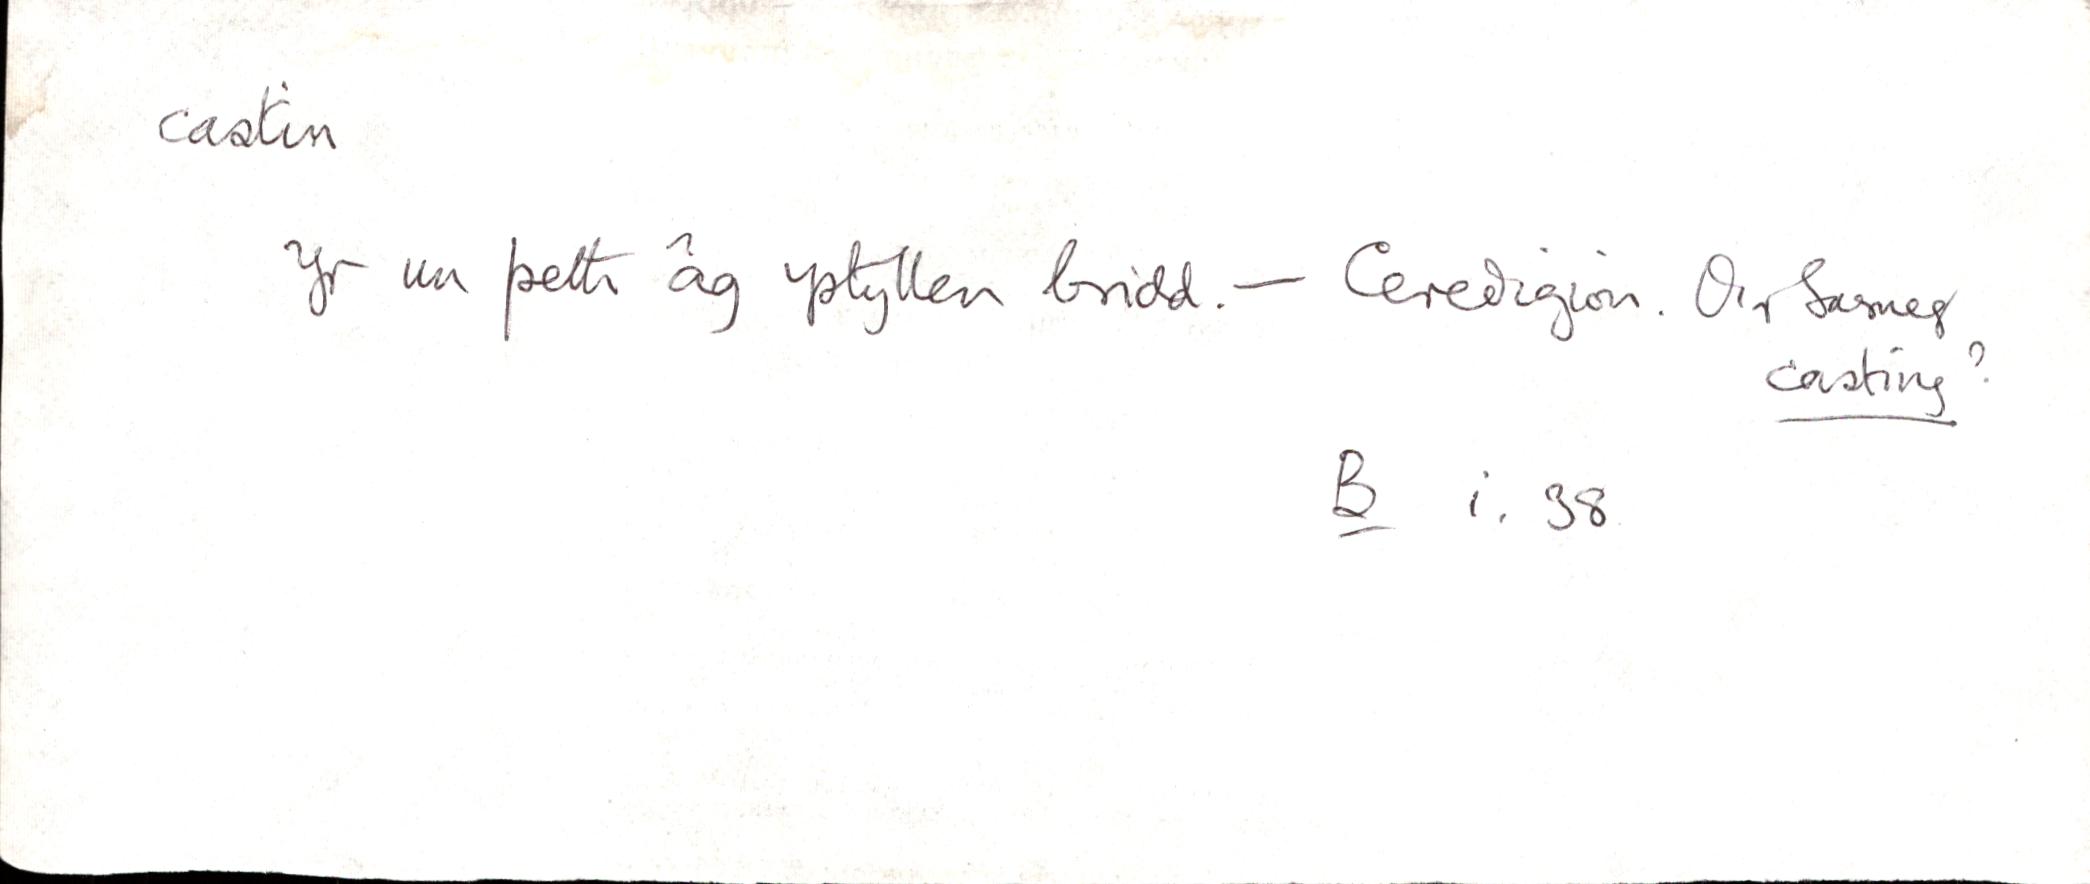 castin
Yr un peth âg ystyllen bridd. — Ceredigion. O'r Saesneg
casting?
B i. 38